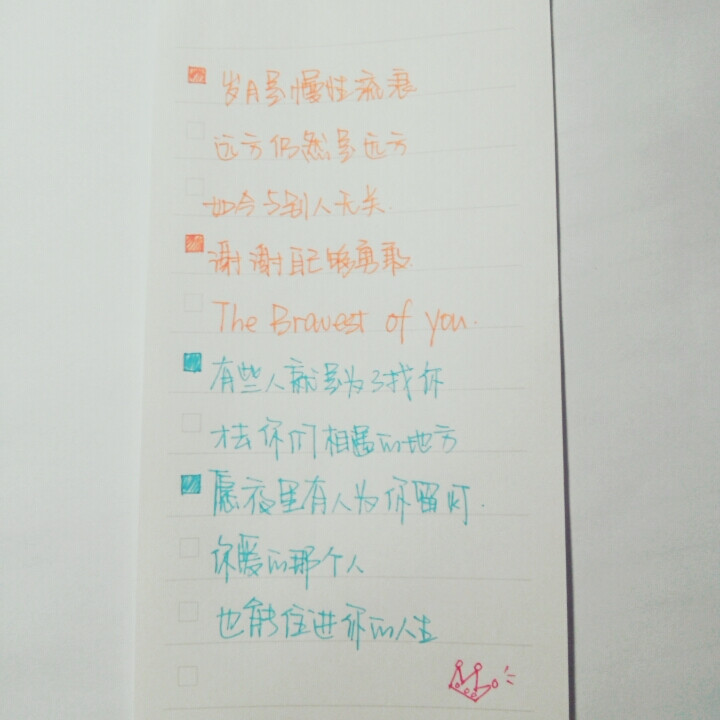 岁月是慢性流衰
远方仍然是远方
如今与别人无关.
谢谢自己够勇敢.
The Bravest of you.
有些人就是为了找你
才去你们相遇的地方
愿夜里有人为你留灯.
你爱的那个人
也能住进你的人生